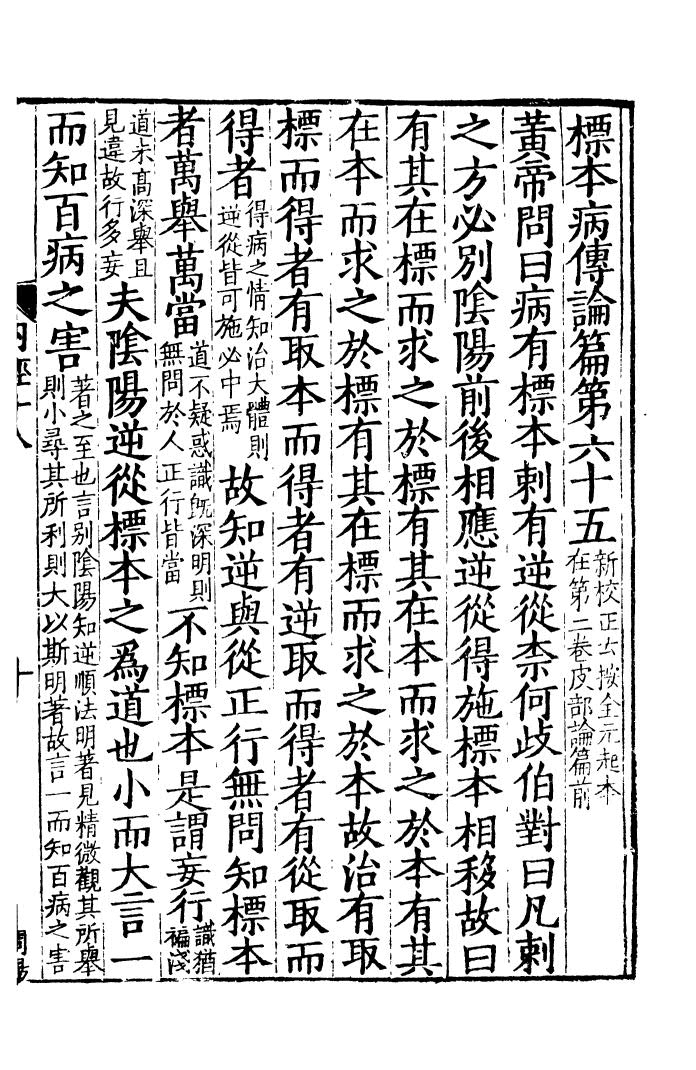 標本病傳論篇第六十五新校正云按全元起本在第二卷皮部論篇前
黃帝問曰病有標本刺有逆從柰何歧伯對曰凡刺
之方必別陰陽前後相應逆從得施標本相移故曰
有其在標而求之於標有其在本而求之於本有其
在本而求之於標有其在標而求之於本故治有取
標而得者有取本而得者有逆取而得者有從取而
得者得病之情知治大體則逆從皆可施必中焉故知逆與從正行無問知標本
者萬舉萬當道不疑惑識既深明則無問於人正行皆當不知標本是謂妄行識猶褊淺
道未高深舉且見違故行多妄夫陰陽逆從標本之爲道也小而大言一
而知百病之害著之至也言別陰陽知逆順法明著見精微觀其所舉則小尋其所利則大以斯明著故言一而知百病之害
內經十八
十